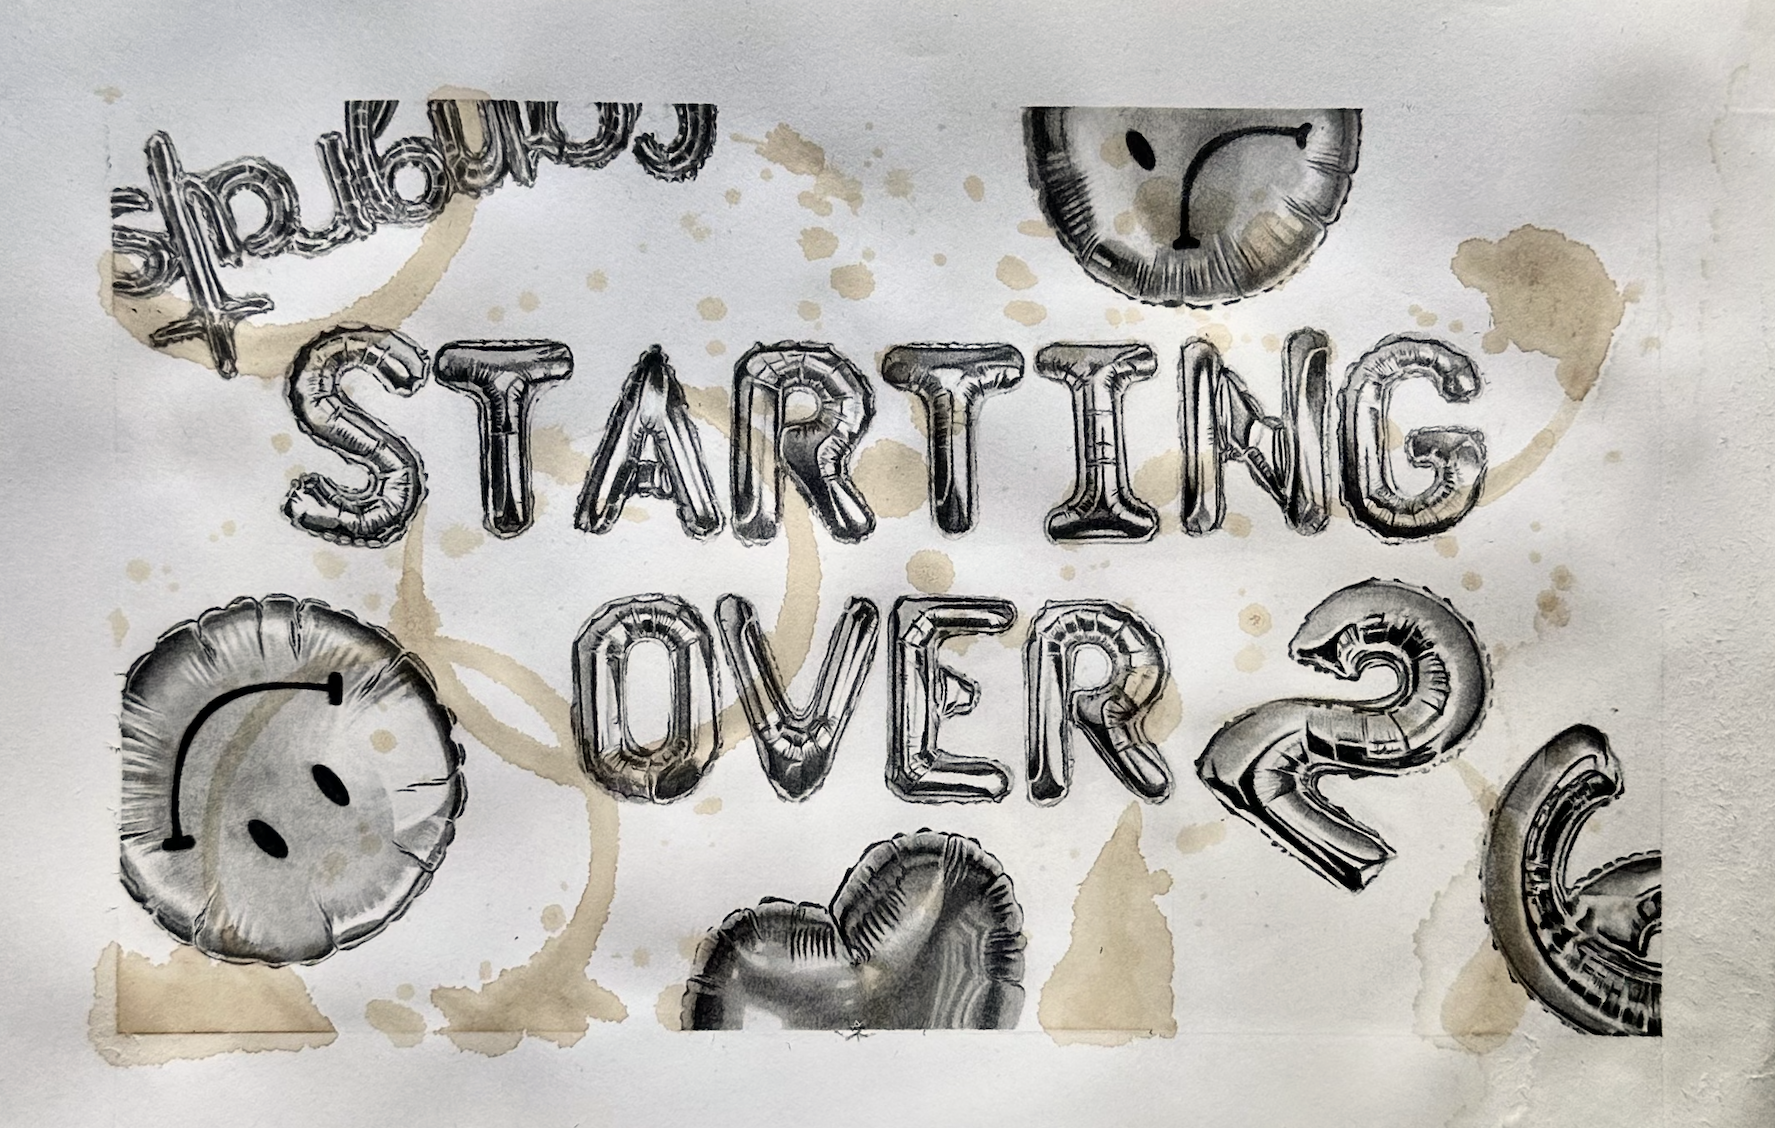 congrats
STARTING
OVER
2
6